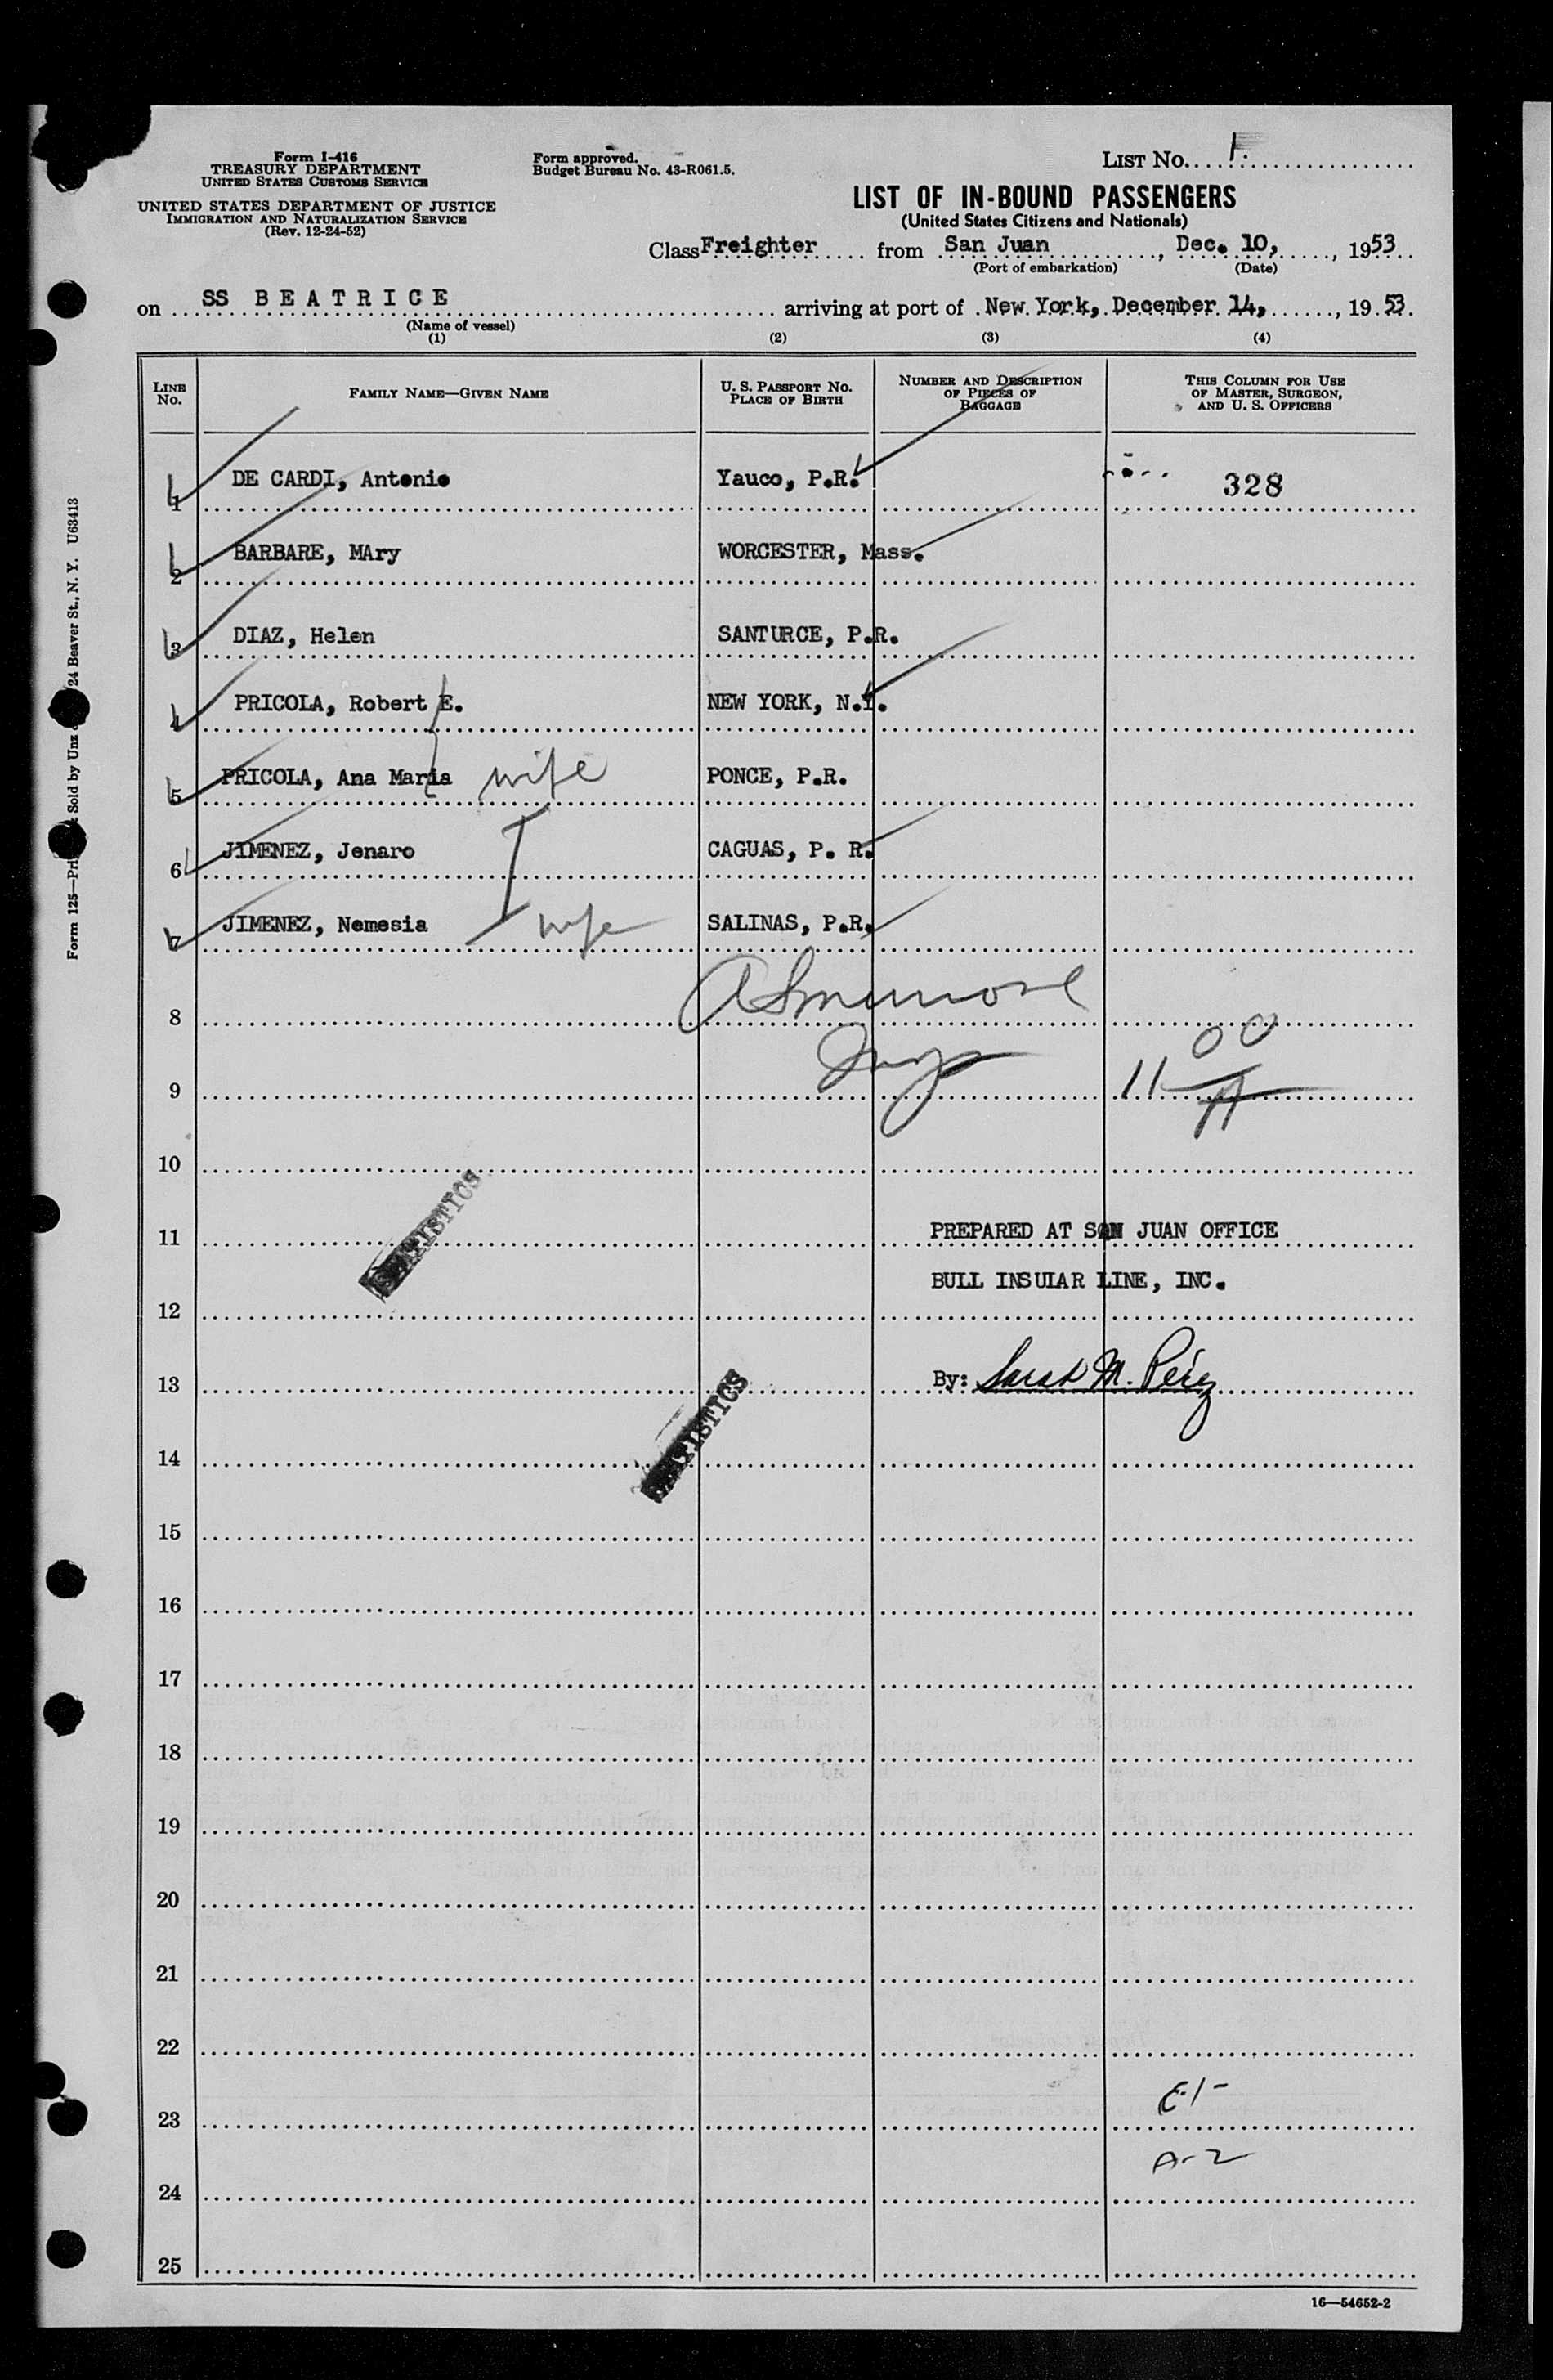 Form I-416
TREASURY DEPARTMENT
UNITED STATES CUSTOMS SERVICE
UNITED STATES DEPARTMENT OF JUSTICE
IMMIGRATION AND NATURALIZATION SERVICE
(Rev. 12-24-52)
Form approved.
Budget Bureau No. 43-R061.5.
LIST NO. 1
LIST OF IN-BOUND PASSENGERS
(United States Citizens and Nationals)
Class Freighter from San Juan, Dec. 10, 1953
(Port of embarkation) (Date)
on SS BEATRICE arriving at port of New York, December 14, 1953.
(Name of vessel)
(1) (2) (3) (4)
LINE NO. FAMILY NAME—GIVEN NAME U. S. PASSPORT NO. PLACE OF BIRTH NUMBER AND DESCRIPTION OF PIECES OF BAGGAGE THIS COLUMN FOR USE OF MASTER, SURGEON, AND U. S. OFFICERS
1 DE CARDI, Antonio Yauco, P.R. 328
2 BARBARE, MAry WORCESTER, Mass.
3 DIAZ, Helen SANTURCE, P.R.
4 PRICOLA, Robert E. NEW YORK, N.Y.
5 PRICOLA, Ana Maria wife PONCE, P.R.
6 JIMENEZ, Jenaro CAGUAS, P. R.
7 JIMENEZ, Nemesia wife SALINAS, P.R.
8
9 11 00 A
10
11 PREPARED AT SAN JUAN OFFICE
BULL INSULAR LINE, INC.
12
13 By: Sarah M. Pérez
14
15
16
17
18
19
20
21
22
23 E-1-
24 A-2
25
STATISTICS
STATISTICS
16—54652-2
Form 125— Sold by Unz 24 Beaver St., N. Y. U63413